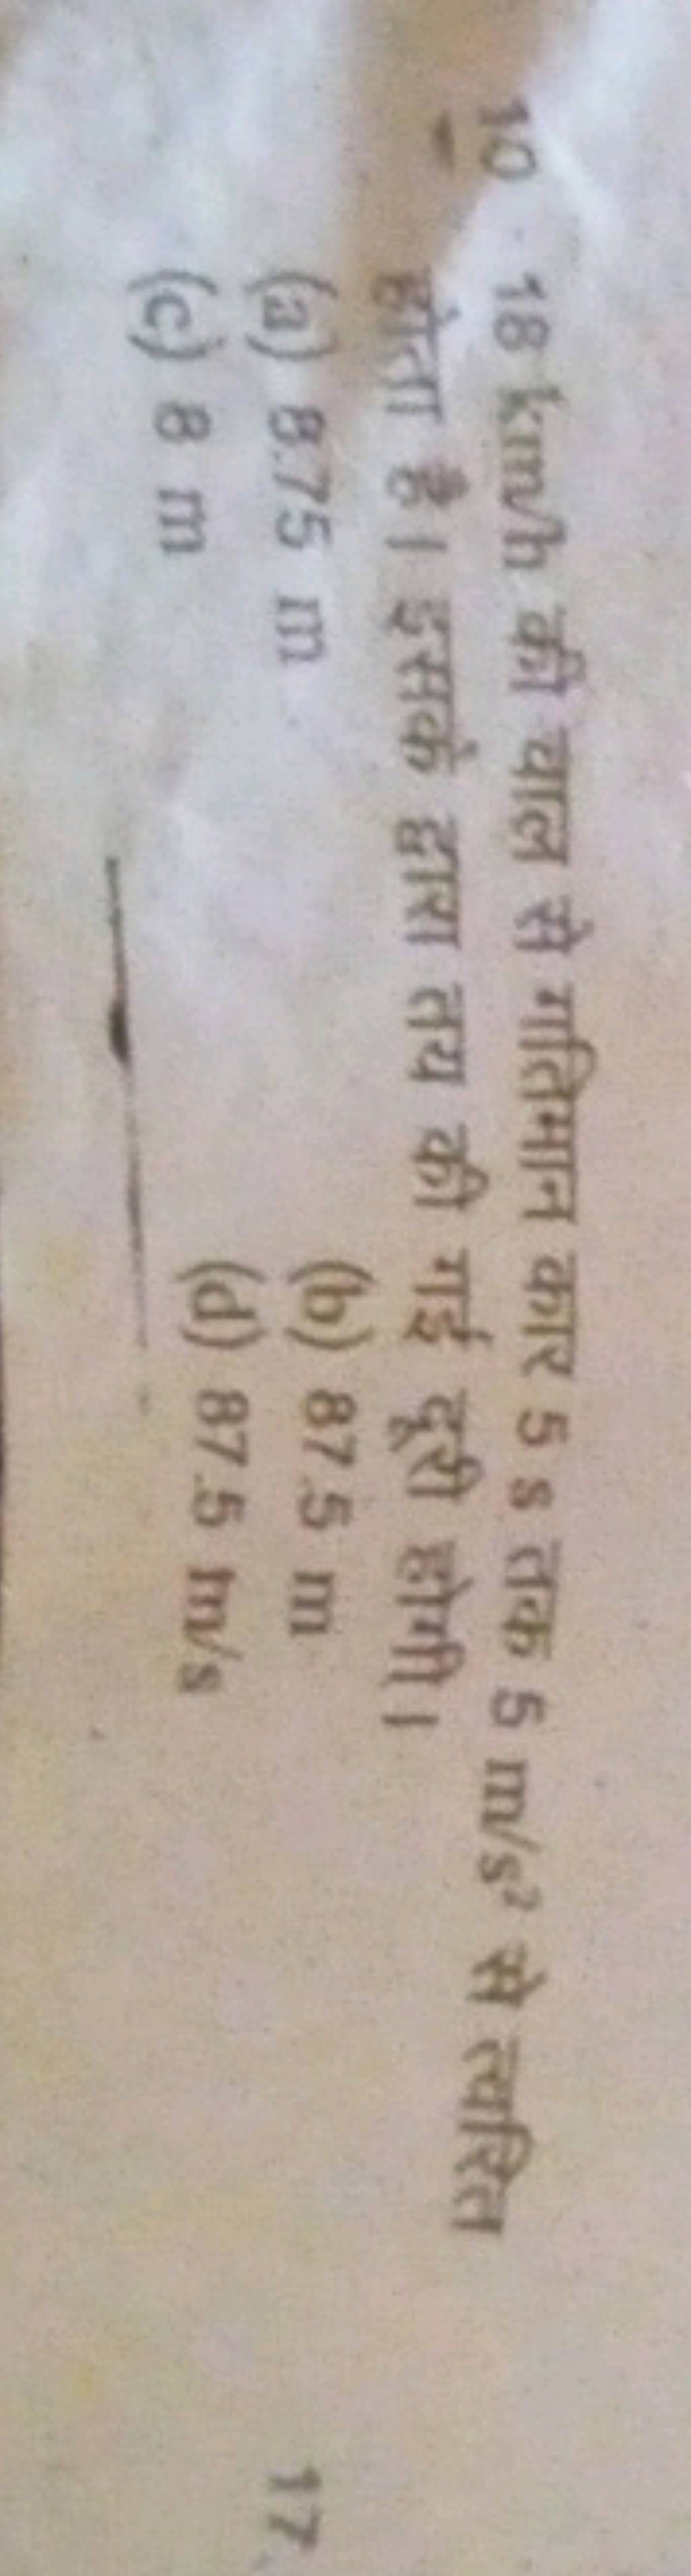 10. 18 km/h की चाल से गतिमान कार 5 s तक 5 m/s² से त्वरित
होता है। इसके द्वारा तय की गई दूरी होगी।
(a) 8.75 m (b) 87.5 m
(c) 8 m (d) 87.5 m/s
17